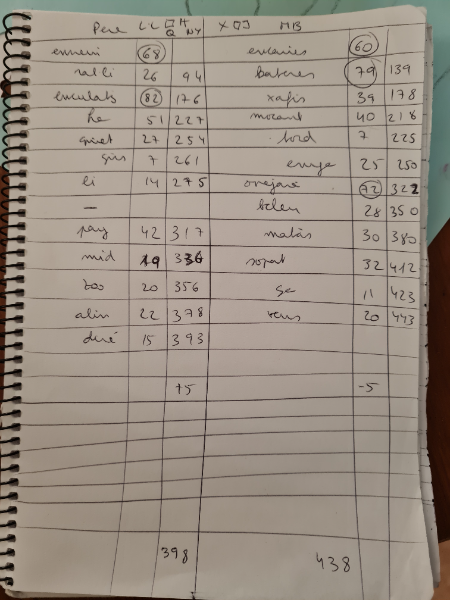 Pere LL H NY Q X MB
enneni 68 encaries 60
ralli 26 94 bateres 79 139
enculats 82 176 xafis 39 178
he 51 227 mozant 40 218
guret 27 254 lord 7 225
gins 7 261 enuge 25 250
li 14 275 orejane 72 322
— belen 28 350
pay 42 317 matàs 30 380
mid 19 336 sopat 32 412
too 20 356 se 11 423
alin 22 378 reus 20 443
duré 15 393
+5 -5
398 438